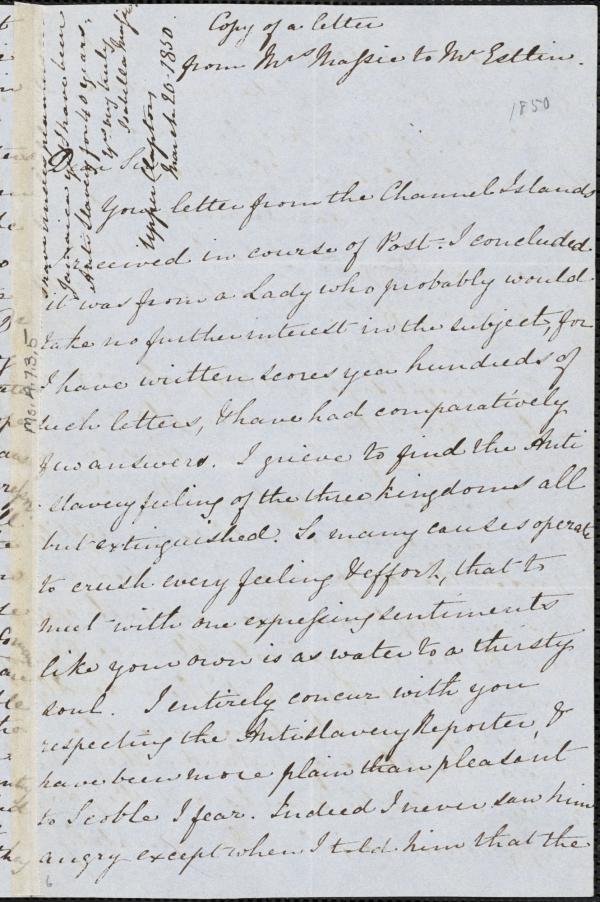 Copy of a letter
from Mrs Massie to Mr Estlin.
1850
Dear Sir
Your letter from the Channel Islands
received in course of Post. I concluded
it was from a Lady who probably would
take no further interest in the subject, for
I have written scores yea hundreds of
such letters, & have had comparatively
few answers. I grieve to find the Anti
slavery feeling of the three kingdoms all
but extinguished. So many causes operate
to crush every feeling & effort, that to
meet with one expressing sentiments
like your own is as water to a thirsty
soul. I entirely concur with you
respecting the Antislavery Reporter, &
have been more plain than pleasant
to Scoble I fear. Indeed I never saw him
angry except when I told him that the
Jamaica & have been
Antislavery for 40 years,
yrs very truly
Isabella Massie
Upper Clapton
March 20. 1850.
Ms. A. 7. 3, 5
6